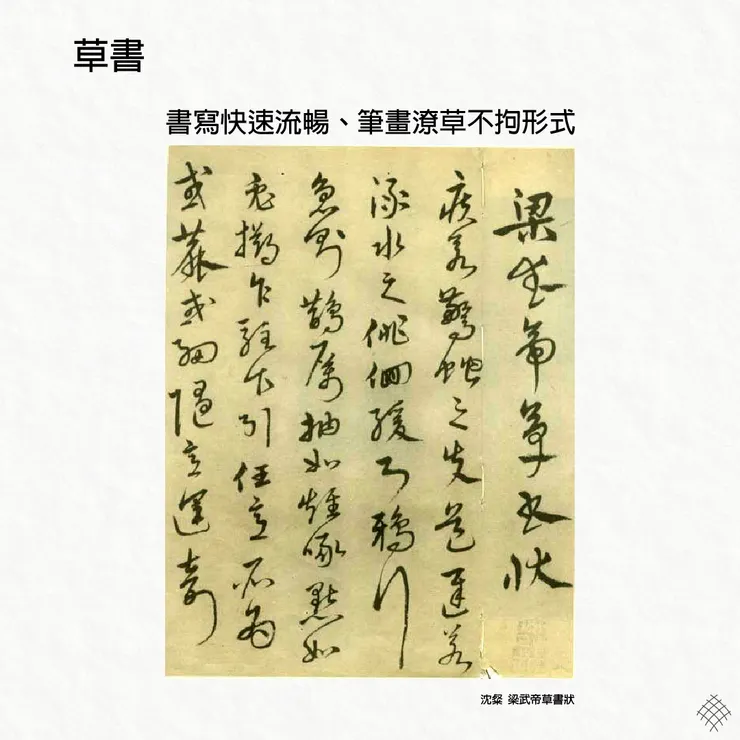 草書
書寫快速流暢、筆畫潦草不拘形式
梁武帝草書狀
疾若驚蛇之失道遲若
淥水之徘徊緩則鴉行
急則鵲厲抽如雉啄點如
兔擲乍駐乍引任意所為
或麤或細隨意運奇
沈粲 梁武帝草書狀